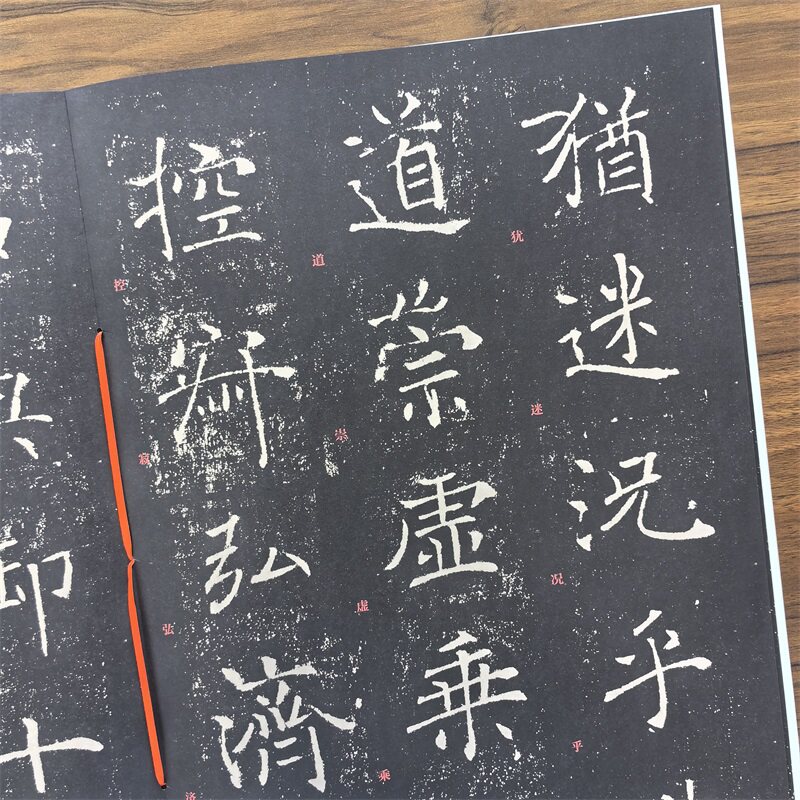 猶迷況乎
犹
迷
况
乎
道崇虛乘
道
崇
虚
乘
控寂弘濟
控
寂
弘
十